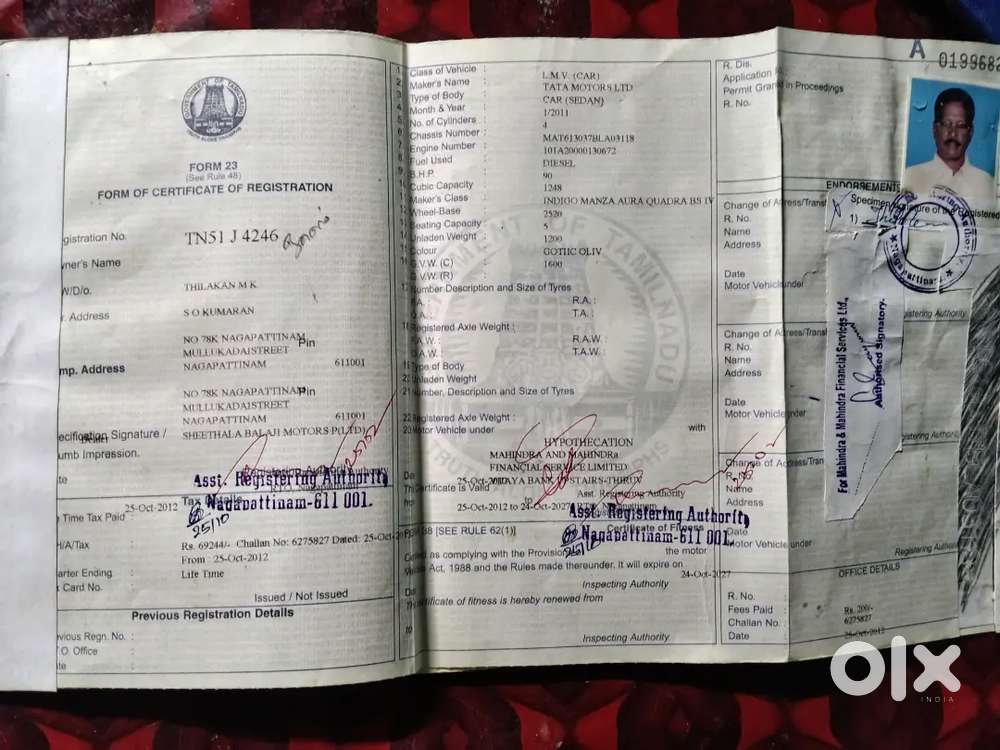 GOVERNMENT OF TAMILNADU
FORM 23
(See Rule 48)
FORM OF CERTIFICATE OF REGISTRATION
gistration No. TN51 J 4246
wner's Name
THILAKAN M K
W/D/o.
S O KUMARAN
Address
NO 78K NAGAPATTINAM Pin
MULLUKADAISTREET
NAGAPATTINAM 611001
mp. Address
NO 78K NAGAPATTINAM Pin
MULLUKADAISTREET
NAGAPATTINAM 611001
ecification Signature / SHEETHALA BALAJI MOTORS P(LTD)
umb Impression.
Registering Authority
Asst. Registering Authority
Nagapattinam-611 001.
25/10
Tax Details
25-Oct-2012
Time Tax Paid
H/A/Tax Rs. 69244/- Challan No: 6275827 Dated: 25-Oct-
From : 25-Oct-2012
arter Ending : Life Time
Card No.
Issued / Not Issued
Previous Registration Details
vious Regn. No. :
O Office
te
Class of Vehicle : L.M.V. (CAR)
Maker's Name : TATA MOTORS LTD
Type of Body : CAR (SEDAN)
Month & Year : 1/2011
No. of Cylinders : 4
Chassis Number : MAT613037BLA03118
Engine Number : 101A20000130672
Fuel Used : DIESEL
B.H.P. : 90
Cubic Capacity : 1248
Maker's Class : INDIGO MANZA AURA QUADRA BS IV
Wheel-Base : 2520
Seating Capacity : 5
Unladen Weight : 1200
Colour : GOTHC OLIV
G.V.W. (C) : 1600
G.V.W. (R) :
Number Description and Size of Tyres
F.A. : R.A. :
O.A. : T.A. :
Registered Axle Weight :
F.A.W. : R.A.W. :
O.A.W. : T.A.W. :
Type of Body
Unladen Weight
Number, Description and Size of Tyres
22 Registered Axle Weight :
23 Motor Vehicle under with
HYPOTHECATION
MAHINDRA AND MAHINDRa
FINANCIAL SERVICE LIMITED
25-Oct- VIJAYA BANK UPSTAIRS-THIRUV
Certificate is Valid Asst. Registering Authority
25-Oct-2012 to 24-Oct-2027
Asst. Registering Authority
Nagapattinam-611 001.
38 [SEE RULE 62(1)] Certificate of Fitness
as complying with the Provision the motor
Act, 1988 and the Rules made thereunder. It will expire on
24-Oct-2027
Inspecting Authority
certificate of fitness is hereby renewed from
to
Inspecting Authority
R. Dis.
Application
Permit Grant in Proceedings
R. No.
A 0199682
ENDORSEMENTS
Change of Adress/Trans
R. No.
Name
Address
Date
Motor Vehicle under
Specimen Signature of the Registered
1)
Nagapattinam
Registering Authority
Change of Adress/Trans
R. No.
Name
Address
Date
Motor Vehicle under
For Mahindra & Mahindra Financial Services Ltd.,
Authorised Signatory.
Change of Adress/Tran
R. No.
Name
Address
Date
Motor Vehicle under
Registering Authority
OFFICE DETAILS
R. No. :
Fees Paid : Rs. 200/-
Challan No. : 6275827
Date : 25-Oct-2012
olx
INDIA